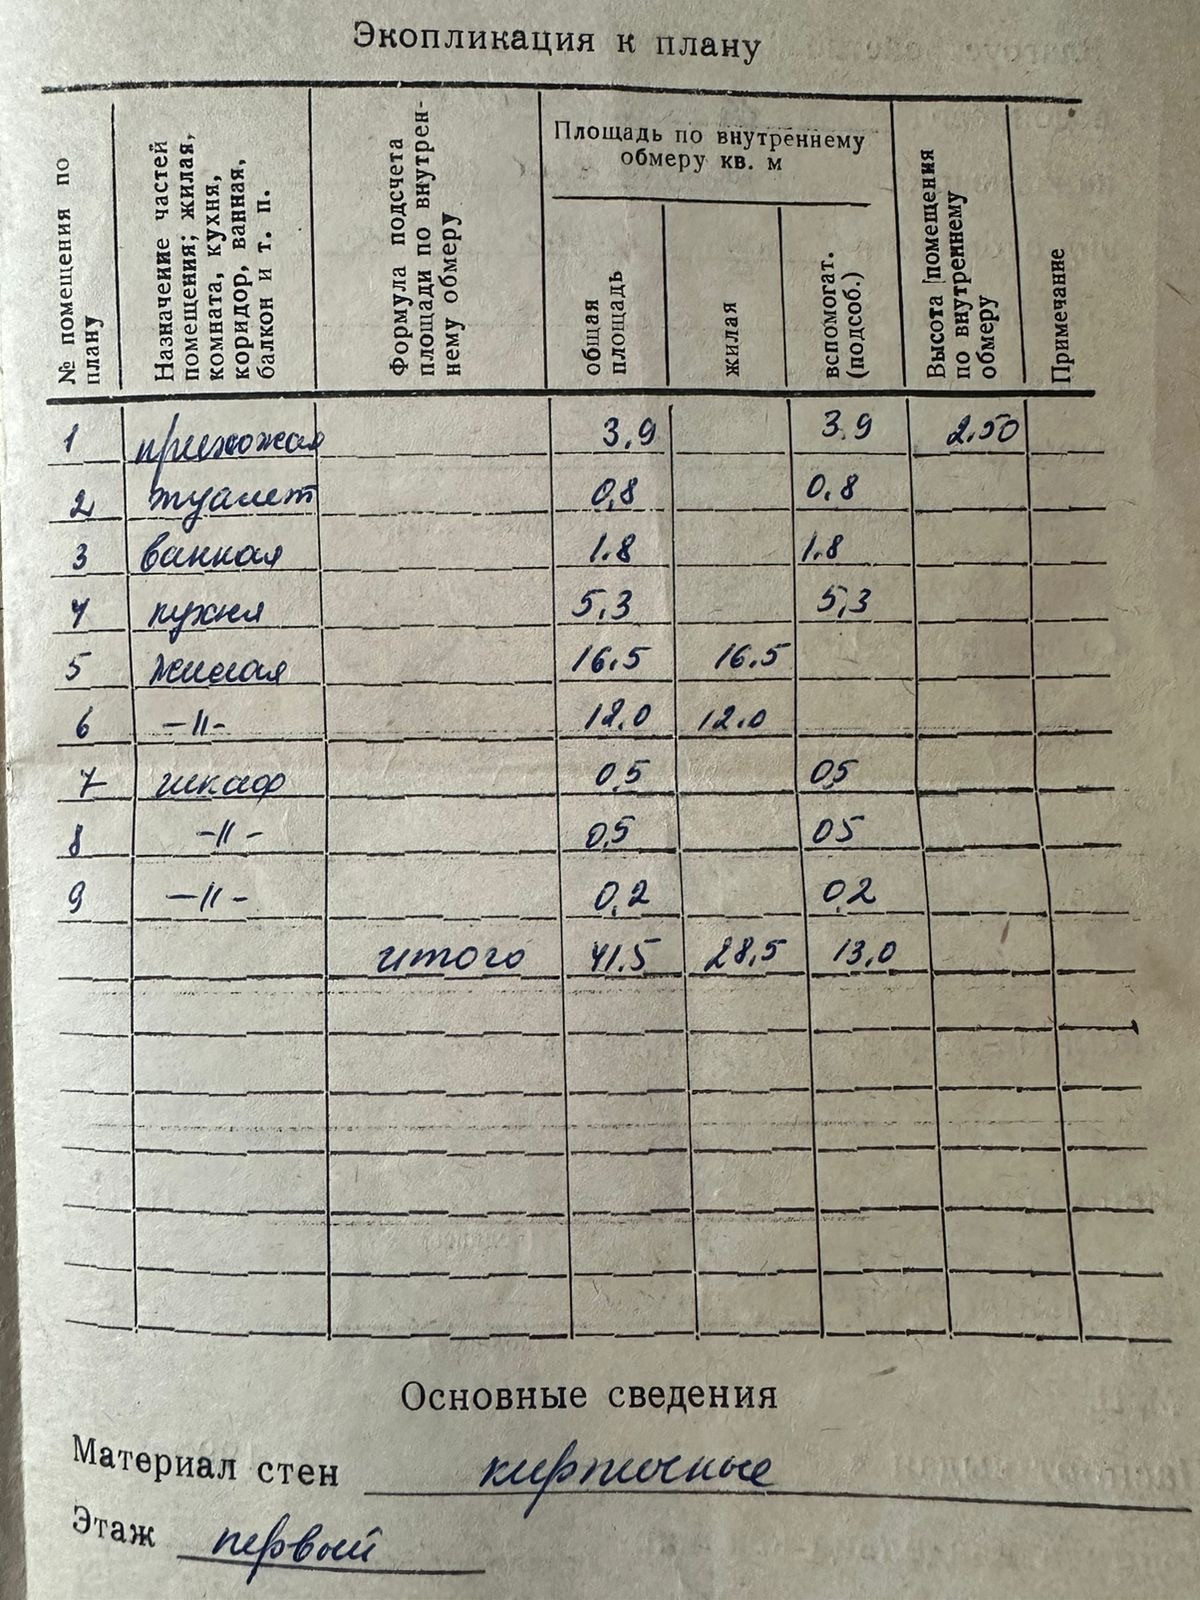 Экопликация к плану
№ помещения по
плану
Назначение частей
помещения; жилая,
комната, кухня,
коридор, ванная,
балкон и т. п.
Формула подсчета
площади по внутрен-
нему обмеру
Площадь по внутреннему
обмеру кв. м
общая
площадь
жилая
вспомогат.
(подсоб.)
Высота помещения
по внутреннему
обмеру
Примечание
1 прихожая 3,9 3,9 2.50
2 туалет 0,8 0,8
3 ванная 1.8 1.8
4 кухня 5,3 5,3
5 жилая 16.5 16.5
6 –//– 12.0 12.0
7 шкаф 0,5 0,5
8 –//– 0,5 0,5
9 –//– 0,2 0,2
итого 41.5 28,5 13,0
Основные сведения
Материал стен кирпичные
Этаж первый